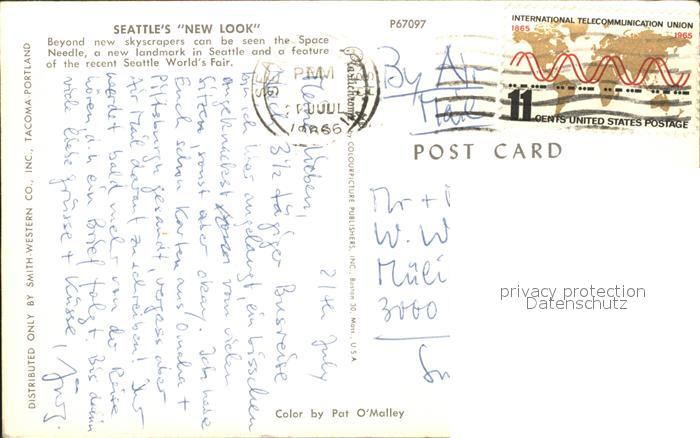 SEATTLE'S "NEW LOOK"
Beyond new skyscrapers can be seen the Space
Needle, a new landmark in Seattle and a feature
of the recent Seattle World's Fair.
P67097
DISTRIBUTED ONLY BY SMITH-WESTERN CO., INC., TACOMA-PORTLAND
Plastichrome
COLOURPICTURE PUBLISHERS, INC., Boston 30, Mass., U.S.A.
PM
1 JUL
1966
INTERNATIONAL TELECOMMUNICATION UNION
1865 1965
11 CENTS UNITED STATES POSTAGE
By Air
Mail
POST CARD
21th July
Lieben,
Nach 3½ tägiger Busreise
bin ich hier angelangt, ein bisschen
angeknackst vom vielen
Sitzen, sonst aber okay. Ich habe
Euch schon Karten aus Omaha +
Pittsburgh gesandt, vergass aber
Air Mail darauf zu schreiben! Ihr
werdet bald mehr von der Reise
hören, d.h. ein Brief folgt. Bis dann
viele liebe Grüsse + Küsse,
Mr +
W. W
Müli
3000
privacy protection
Datenschutz
Color by Pat O'Malley